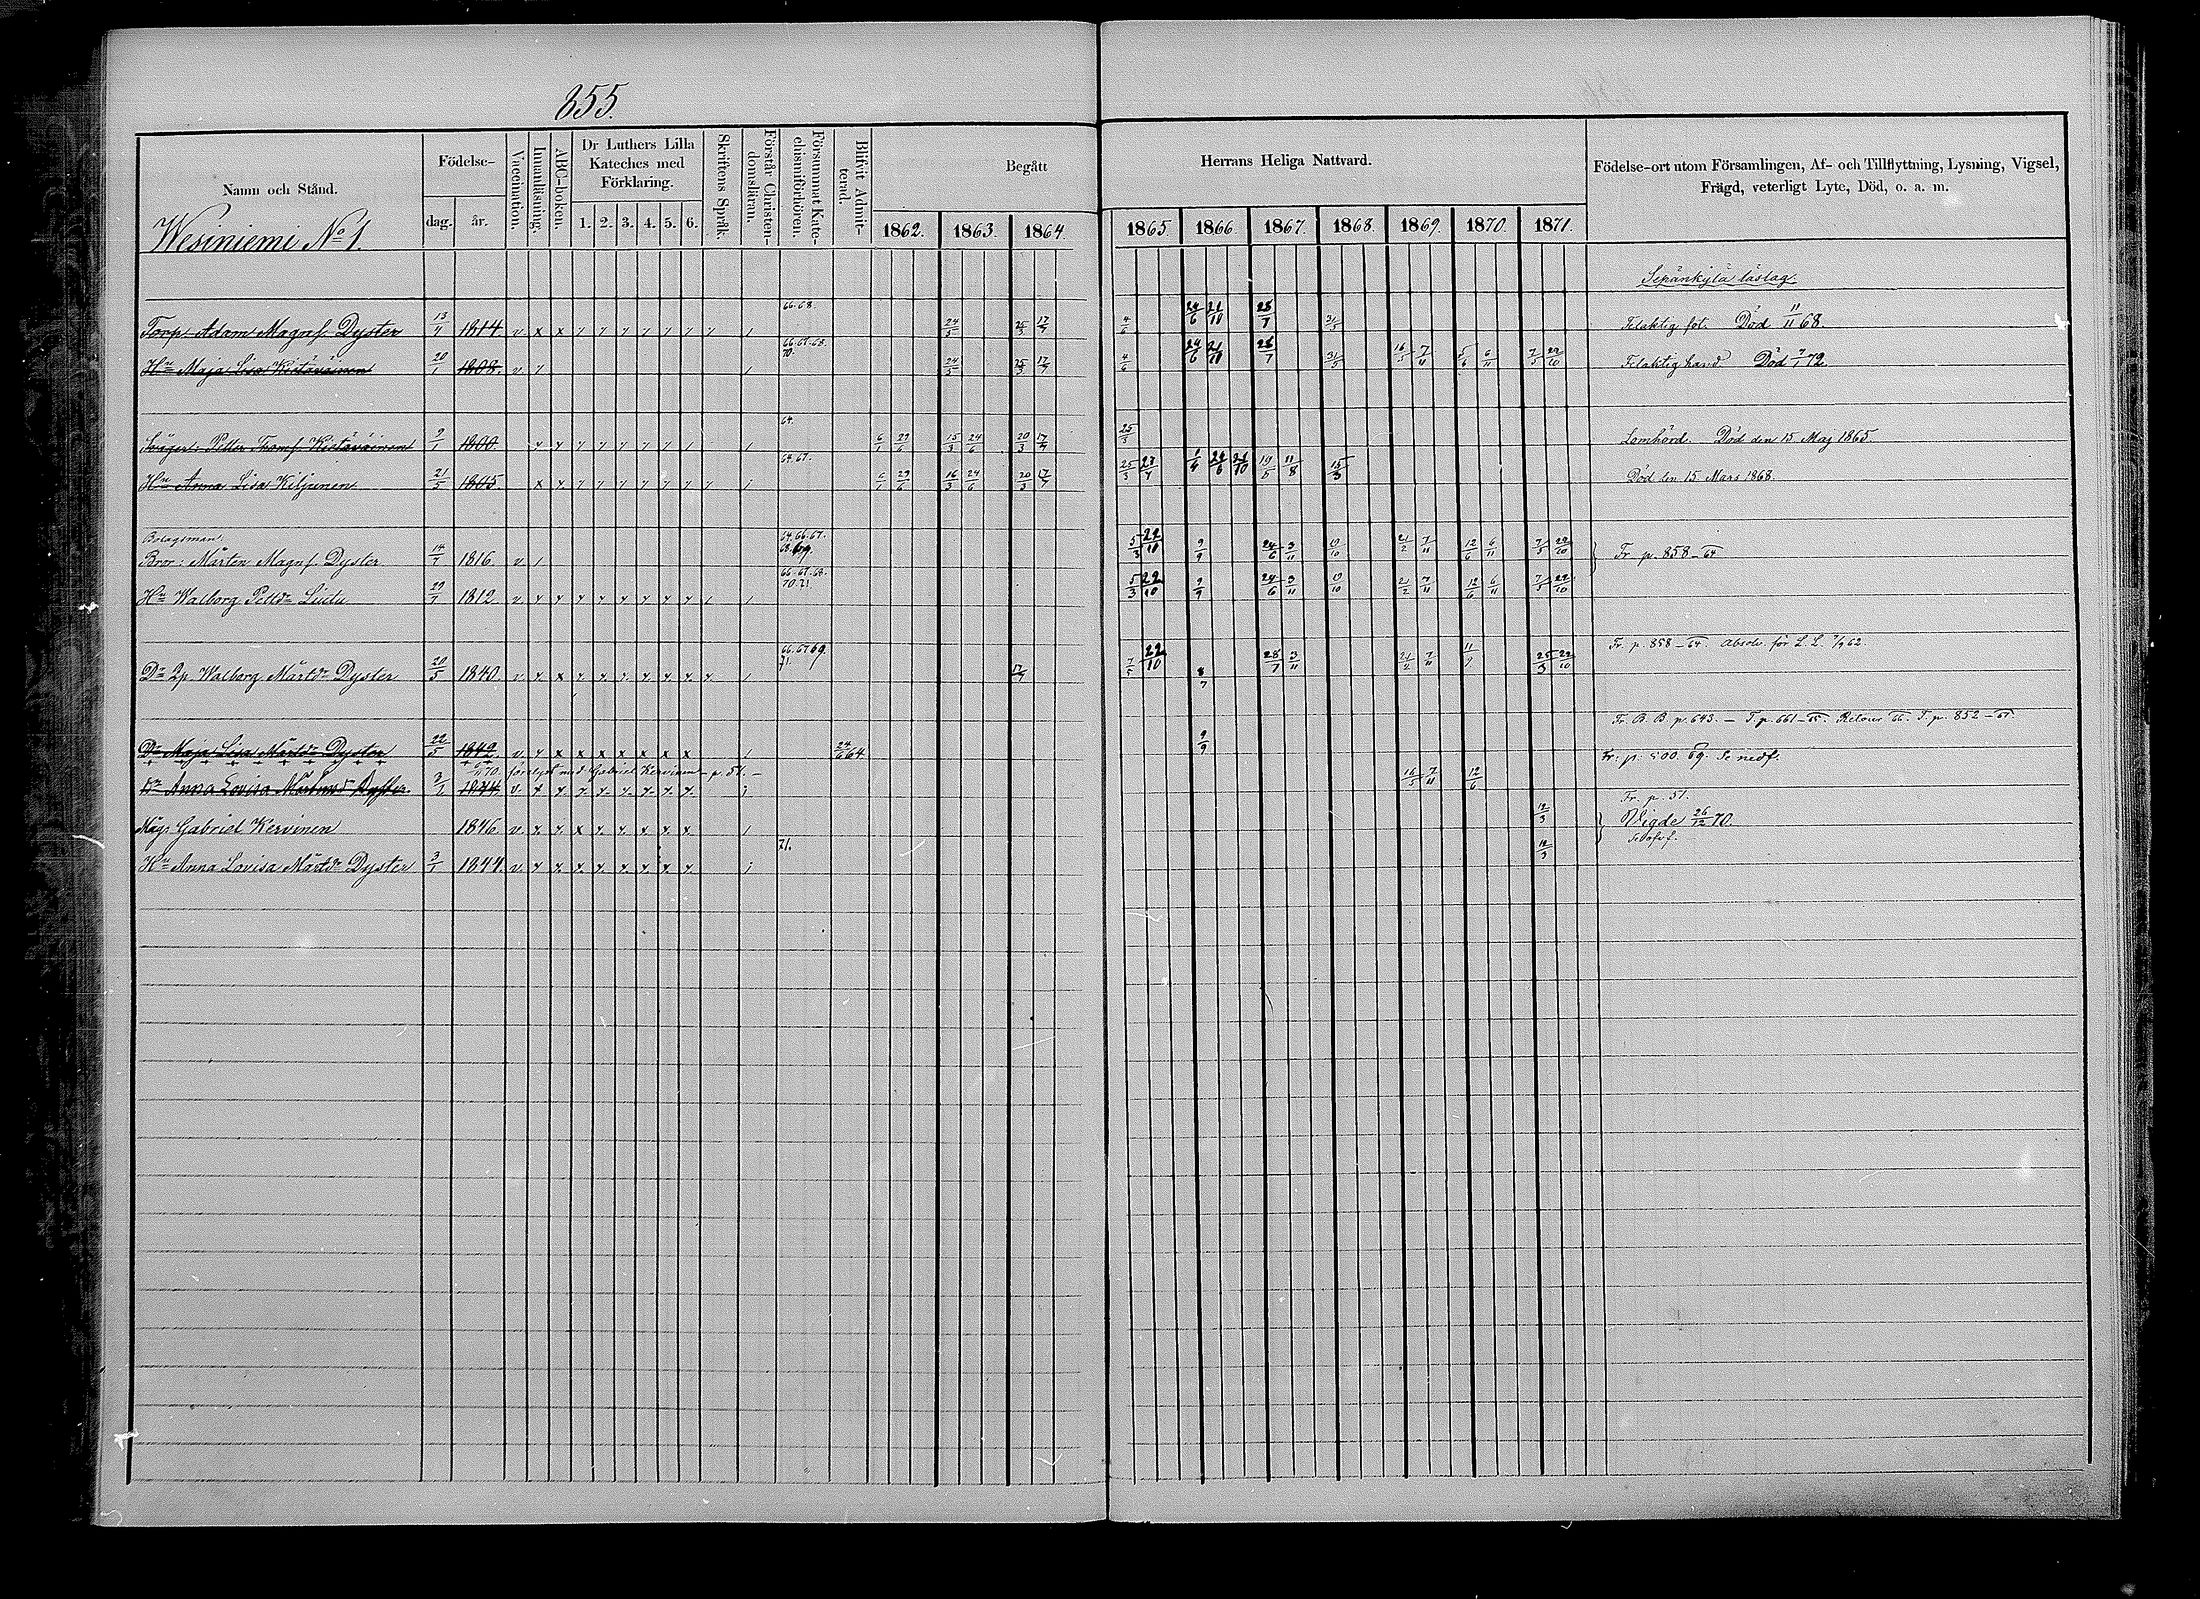 855.
Namn och Stånd.
Wesiniemi No 1.
Födelse-
dag.
år.
Vaccination.
Innanläsning.
ABC-boken.
Dr Luthers Lilla Kateches med Förklaring.
1. 2. 3. 4. 5. 6.
Skriftens Språk.
Förstår Christendomsläran.
Försummat Katechismiförhören.
Blifvit Admitterad.
Begått
1862. 1863. 1864.
Herrans Heliga Nattvard.
1865 1866. 1867. 1868. 1869. 1870. 1871.
Födelse-ort utom Församlingen, Af- och Tillflyttning, Lysning, Vigsel,
Frägd, veterligt Lyte, Död, o. a. m.
Sepänkylä läslag.
Torp. Adam Magns. Dyster 13/7 1814. 66.68. 24/5 25/3 17/7 4/6 24/6 21/10 28/7 31/5 Felaktig fot. Död 11/11 68.
Hu Maja Lisa Kietäväinen 20/1 1808. 66.67.68. 70. 24/5 25/3 17/7 4/6 24/6 21/10 28/7 31/5 16/5 7/11 5/6 6/11 7/5 29/10 Felaktig hand Död 7/7 72.
Svåger: Petter Thoms. Kietäväinen 9/1 1800. 64. 6/1 29/6 15/3 24/6 20/3 17/7 25/3 Lomhörd. Död den 15 Maj 1865.
Hu Anna Lisa Kiljunen 21/5 1805. 64.67. 6/1 29/6 16/3 24/6 20/3 17/7 25/3 23/7 1/4 24/6 21/10 19/5 11/8 15/3 Död den 15 Mars 1868.
Bolagsman.
Bror: Mårten Magns. Dyster 14/7 1816. 64.66.67. 68.69. 5/3 22/10 9/9 24/6 3/11 10/10 21/2 7/11 12/6 6/11 7/5 29/10 Fr. p. 858-64
Hu Walborg Pettdr 29/7 1812. 66.67.68. 70.71 5/3 22/10 9/9 24/6 3/11 10/10 21/2 7/11 12/6 6/11 7/5 29/10
Dr Walborg Mårtdr Dyster 20/5 1840. 66.67.69 71. 17/7 7/5 22/10 8/7 28/7 3/11 21/2 7/11 11/9 25/3 29/10 Fr. p. 858-64. Absolv. för L. L. 7/9 62.
Dr Maja Lisa Mårtdr Dyster 22/5 1842. 24/6 64 9/9 Fr. B. B. p. 643. - T. p. 661-65. Retour 66. T. p. 852-67.
6/11 70. förlyst med Gabriel Kervinen - p. 51. -
Dr Anna Lovisa Mårtensdr Dyster 3/1 1844. 16/5 7/11 12/6 Fr. p. 500. 69. Se nedf.
Måg Gabriel Kervinen 1846 12/3 Fr. p. 51. Vigde 26/12 70.
Hu Anna Lovisa Mårtdr Dyster 3/1 1844. 71. 12/3 Se ofv.